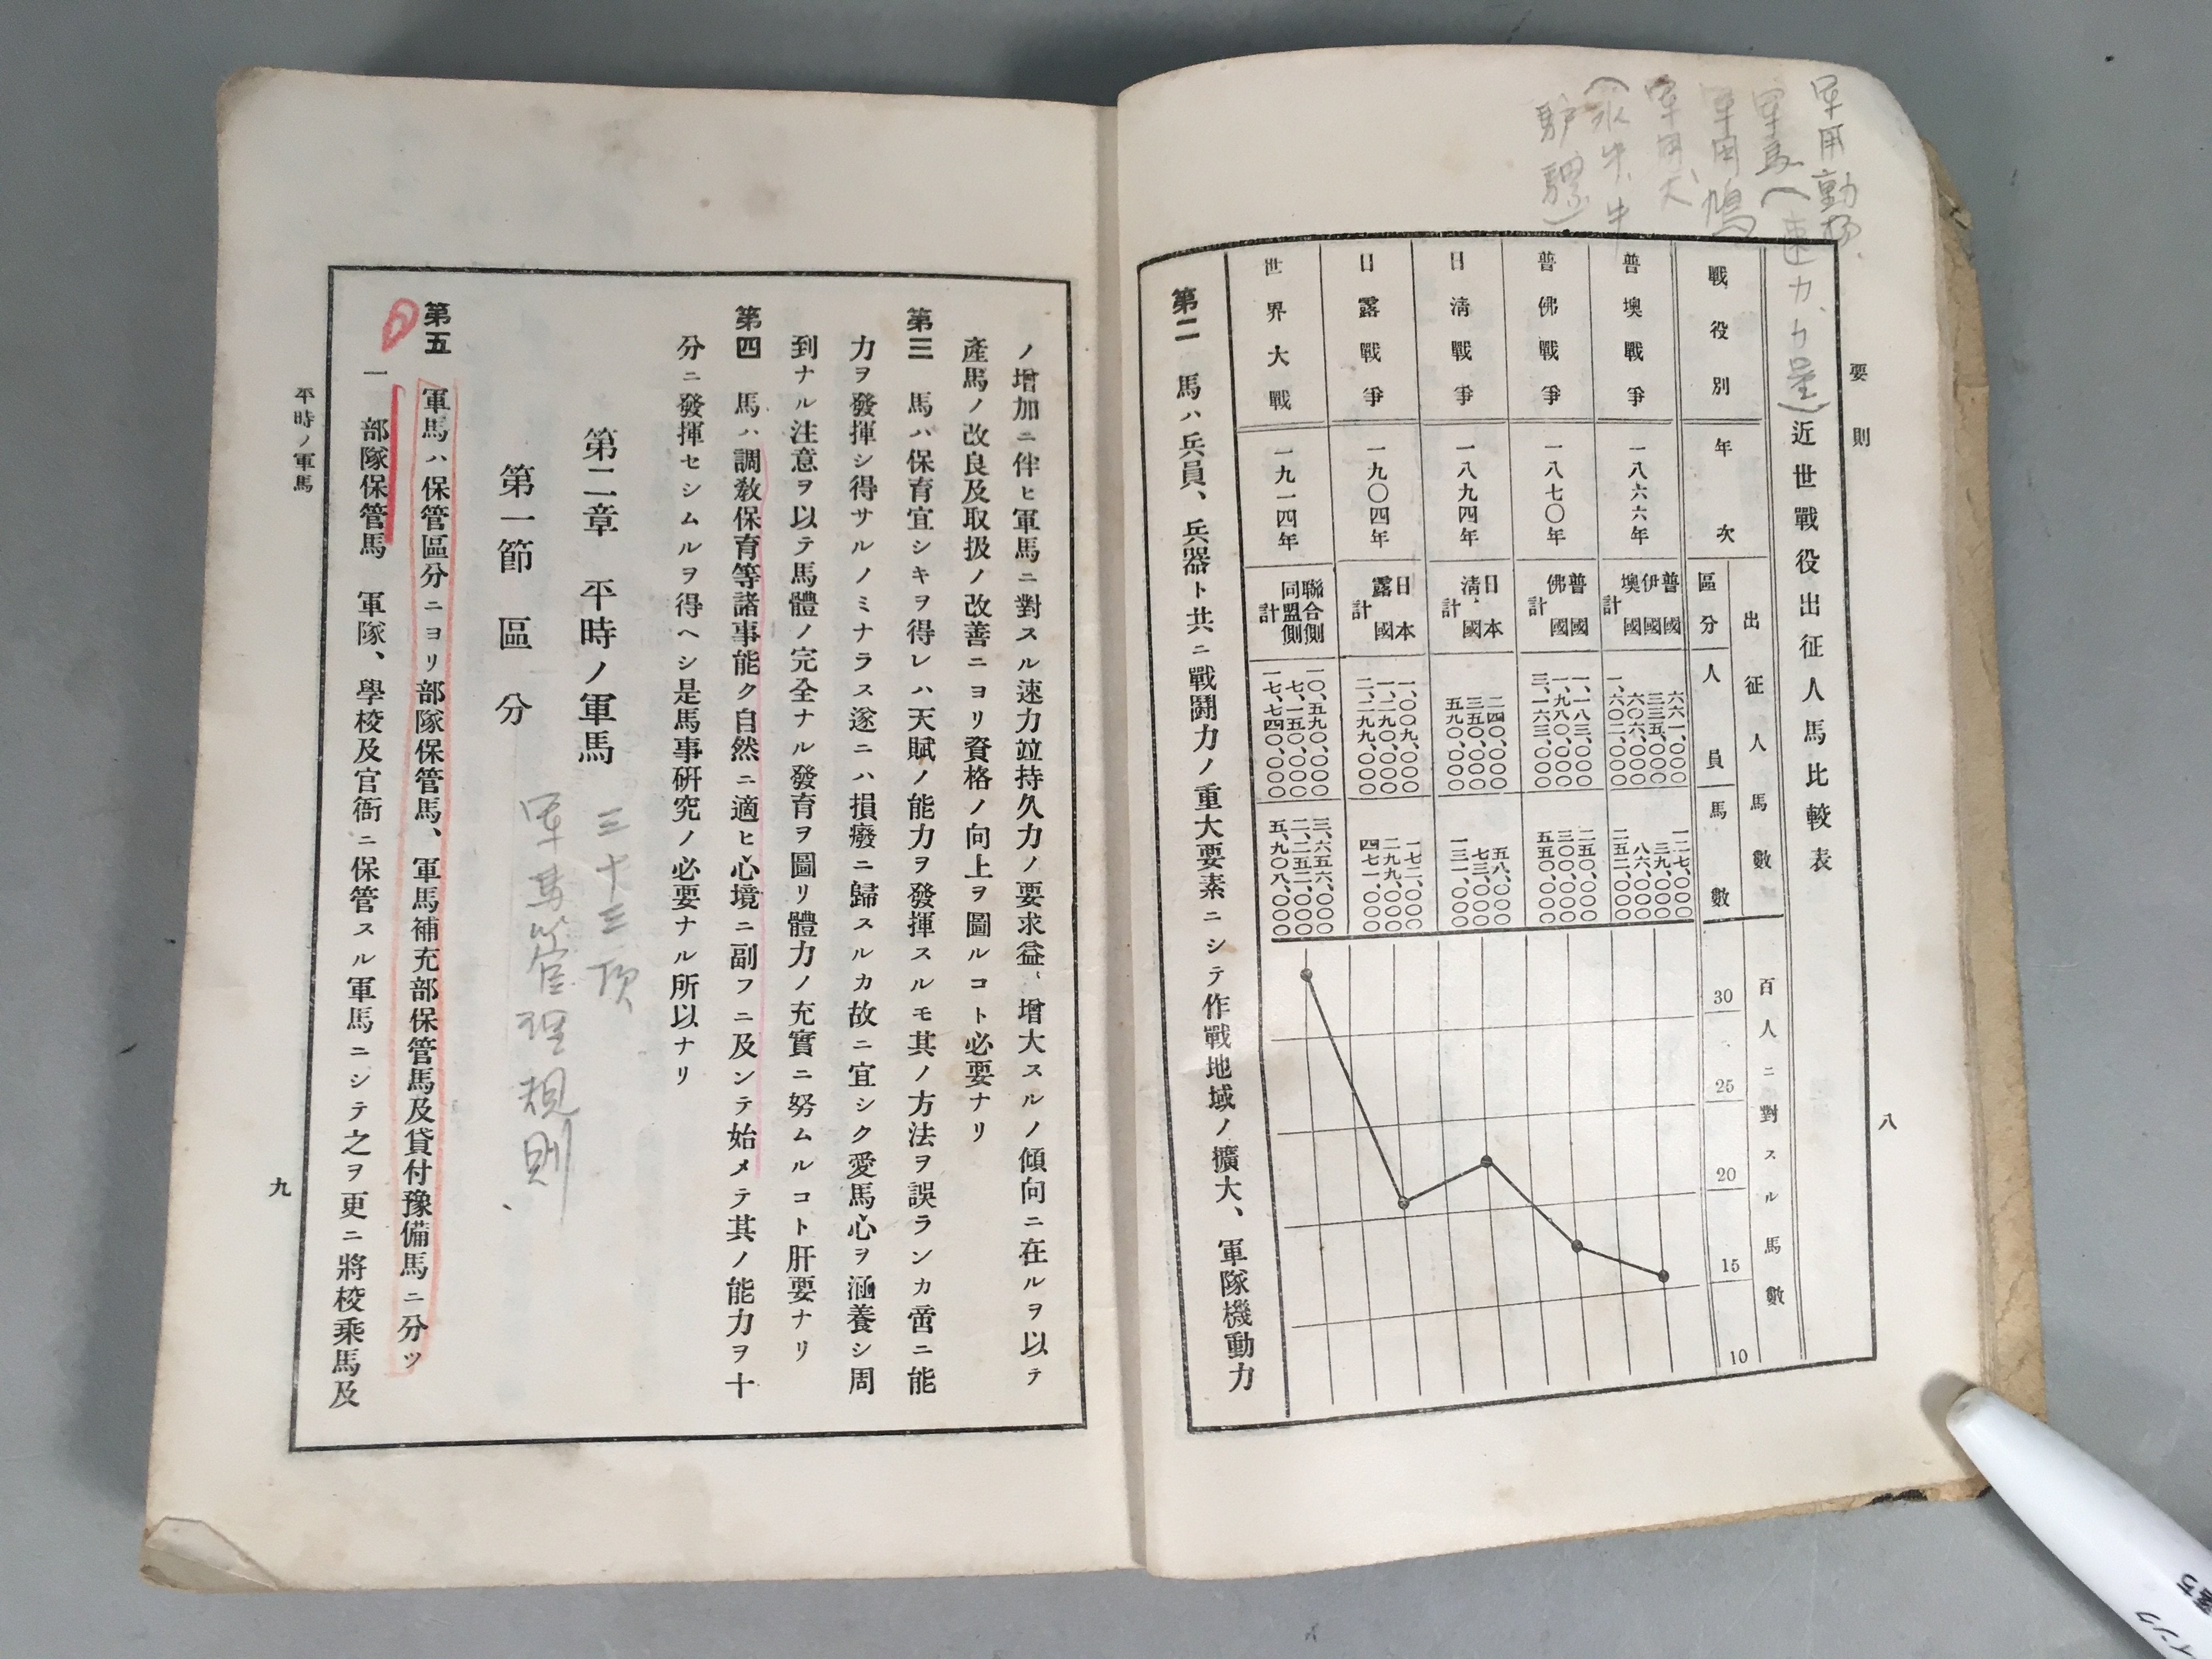 軍用動物
軍馬(速力、力量)
軍用鳩
軍用犬
(水牛、牛
驢 騾)
要則
八
近世戰役出征人馬比較表
戰役別
年次
出征人馬數
區分
人員
馬數
百人ニ對スル馬數
30
25
20
15
10
普墺戰爭
一八六六年
普國
伊國
墺國
計
六六一、〇〇〇
三三五、〇〇〇
六〇六、〇〇〇
一、六〇二、〇〇〇
一二七、〇〇〇
三九、〇〇〇
八六、〇〇〇
二五二、〇〇〇
普佛戰爭
一八七〇年
普國
佛國
計
一、一八三、〇〇〇
一、九八〇、〇〇〇
三、一六三、〇〇〇
二五〇、〇〇〇
三〇〇、〇〇〇
五五〇、〇〇〇
日淸戰爭
一八九四年
日本
淸國
計
二四〇、〇〇〇
三五〇、〇〇〇
五九〇、〇〇〇
五八、〇〇〇
七三、〇〇〇
一三一、〇〇〇
日露戰爭
一九〇四年
日本
露國
計
一、〇〇九、〇〇〇
一、二九〇、〇〇〇
二、二九九、〇〇〇
一七二、〇〇〇
二九九、〇〇〇
四七一、〇〇〇
世界大戰
一九一四年
聯合側
同盟側
計
一〇、五九〇、〇〇〇
七、一五〇、〇〇〇
一七、七四〇、〇〇〇
三、六五六、〇〇〇
二、二五二、〇〇〇
五、九〇八、〇〇〇
第二 馬ハ兵員、兵器ト共ニ戰鬪力ノ重大要素ニシテ作戰地域ノ擴大、軍隊機動力
ノ增加ニ伴ヒ軍馬ニ對スル速力竝持久力ノ要求益〻增大スルノ傾向ニ在ルヲ以テ
產馬ノ改良及取扱ノ改善ニヨリ資格ノ向上ヲ圖ルコト必要ナリ
第三 馬ハ保育宜シキヲ得レハ天賦ノ能力ヲ發揮スルモ其ノ方法ヲ誤ランカ啻ニ能
力ヲ發揮シ得サルノミナラス遂ニハ損癈ニ歸スルカ故ニ宜シク愛馬心ヲ涵養シ周
到ナル注意ヲ以テ馬體ノ完全ナル發育ヲ圖リ體力ノ充實ニ努ムルコト肝要ナリ
第四 馬ハ調敎保育等諸事能ク自然ニ適ヒ心境ニ副フニ及ンテ始メテ其ノ能力ヲ十
分ニ發揮セシムルヲ得ヘシ是馬事硏究ノ必要ナル所以ナリ
第二章 平時ノ軍馬
三十三項
第一節 區分
軍馬管理規則
第五 軍馬ハ保管區分ニヨリ部隊保管馬、軍馬補充部保管馬及貸付豫備馬ニ分ツ
一 部隊保管馬 軍隊、學校及官衙ニ保管スル軍馬ニシテ之ヲ更ニ將校乘馬及
平時ノ軍馬
九